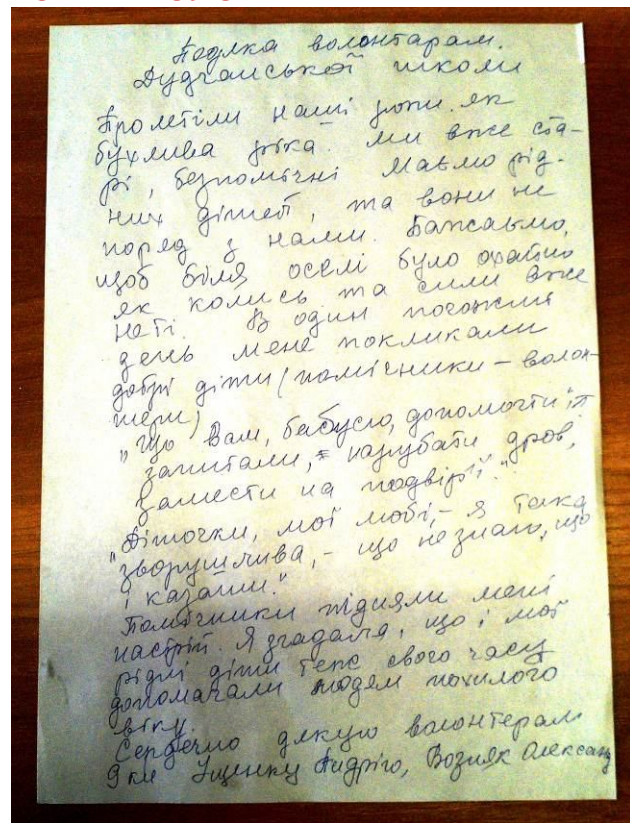 Подяка волонтарам.
Дудчанської школи
Пролетіли наші роки як
бухлива ріка. Ми вже ста-
рі, безпомічні Маємо рід-
них дітей, та вони не
поряд з нами. Бажаємо,
щоб біля оселі було охайно
як колись та сили вже
неті. В один погожий
день мене покликали
добрі діти (помічники - волон-
тери)
"Що Вам, бабусю, допомогти"?
запитали, нарубати дров,
замести на подвірї."
"Діточки, мої любі, - я така
зворушлива, - що не знаю, що
і казати."
Помічники підняли мені
настрій. Я згадала, що і мої
рідні діти теж свого часу
допомагали людям похилого
віку.
Сердечно дякую волонтерам
9 кл Іщенку Андрію, Возняк Олександ